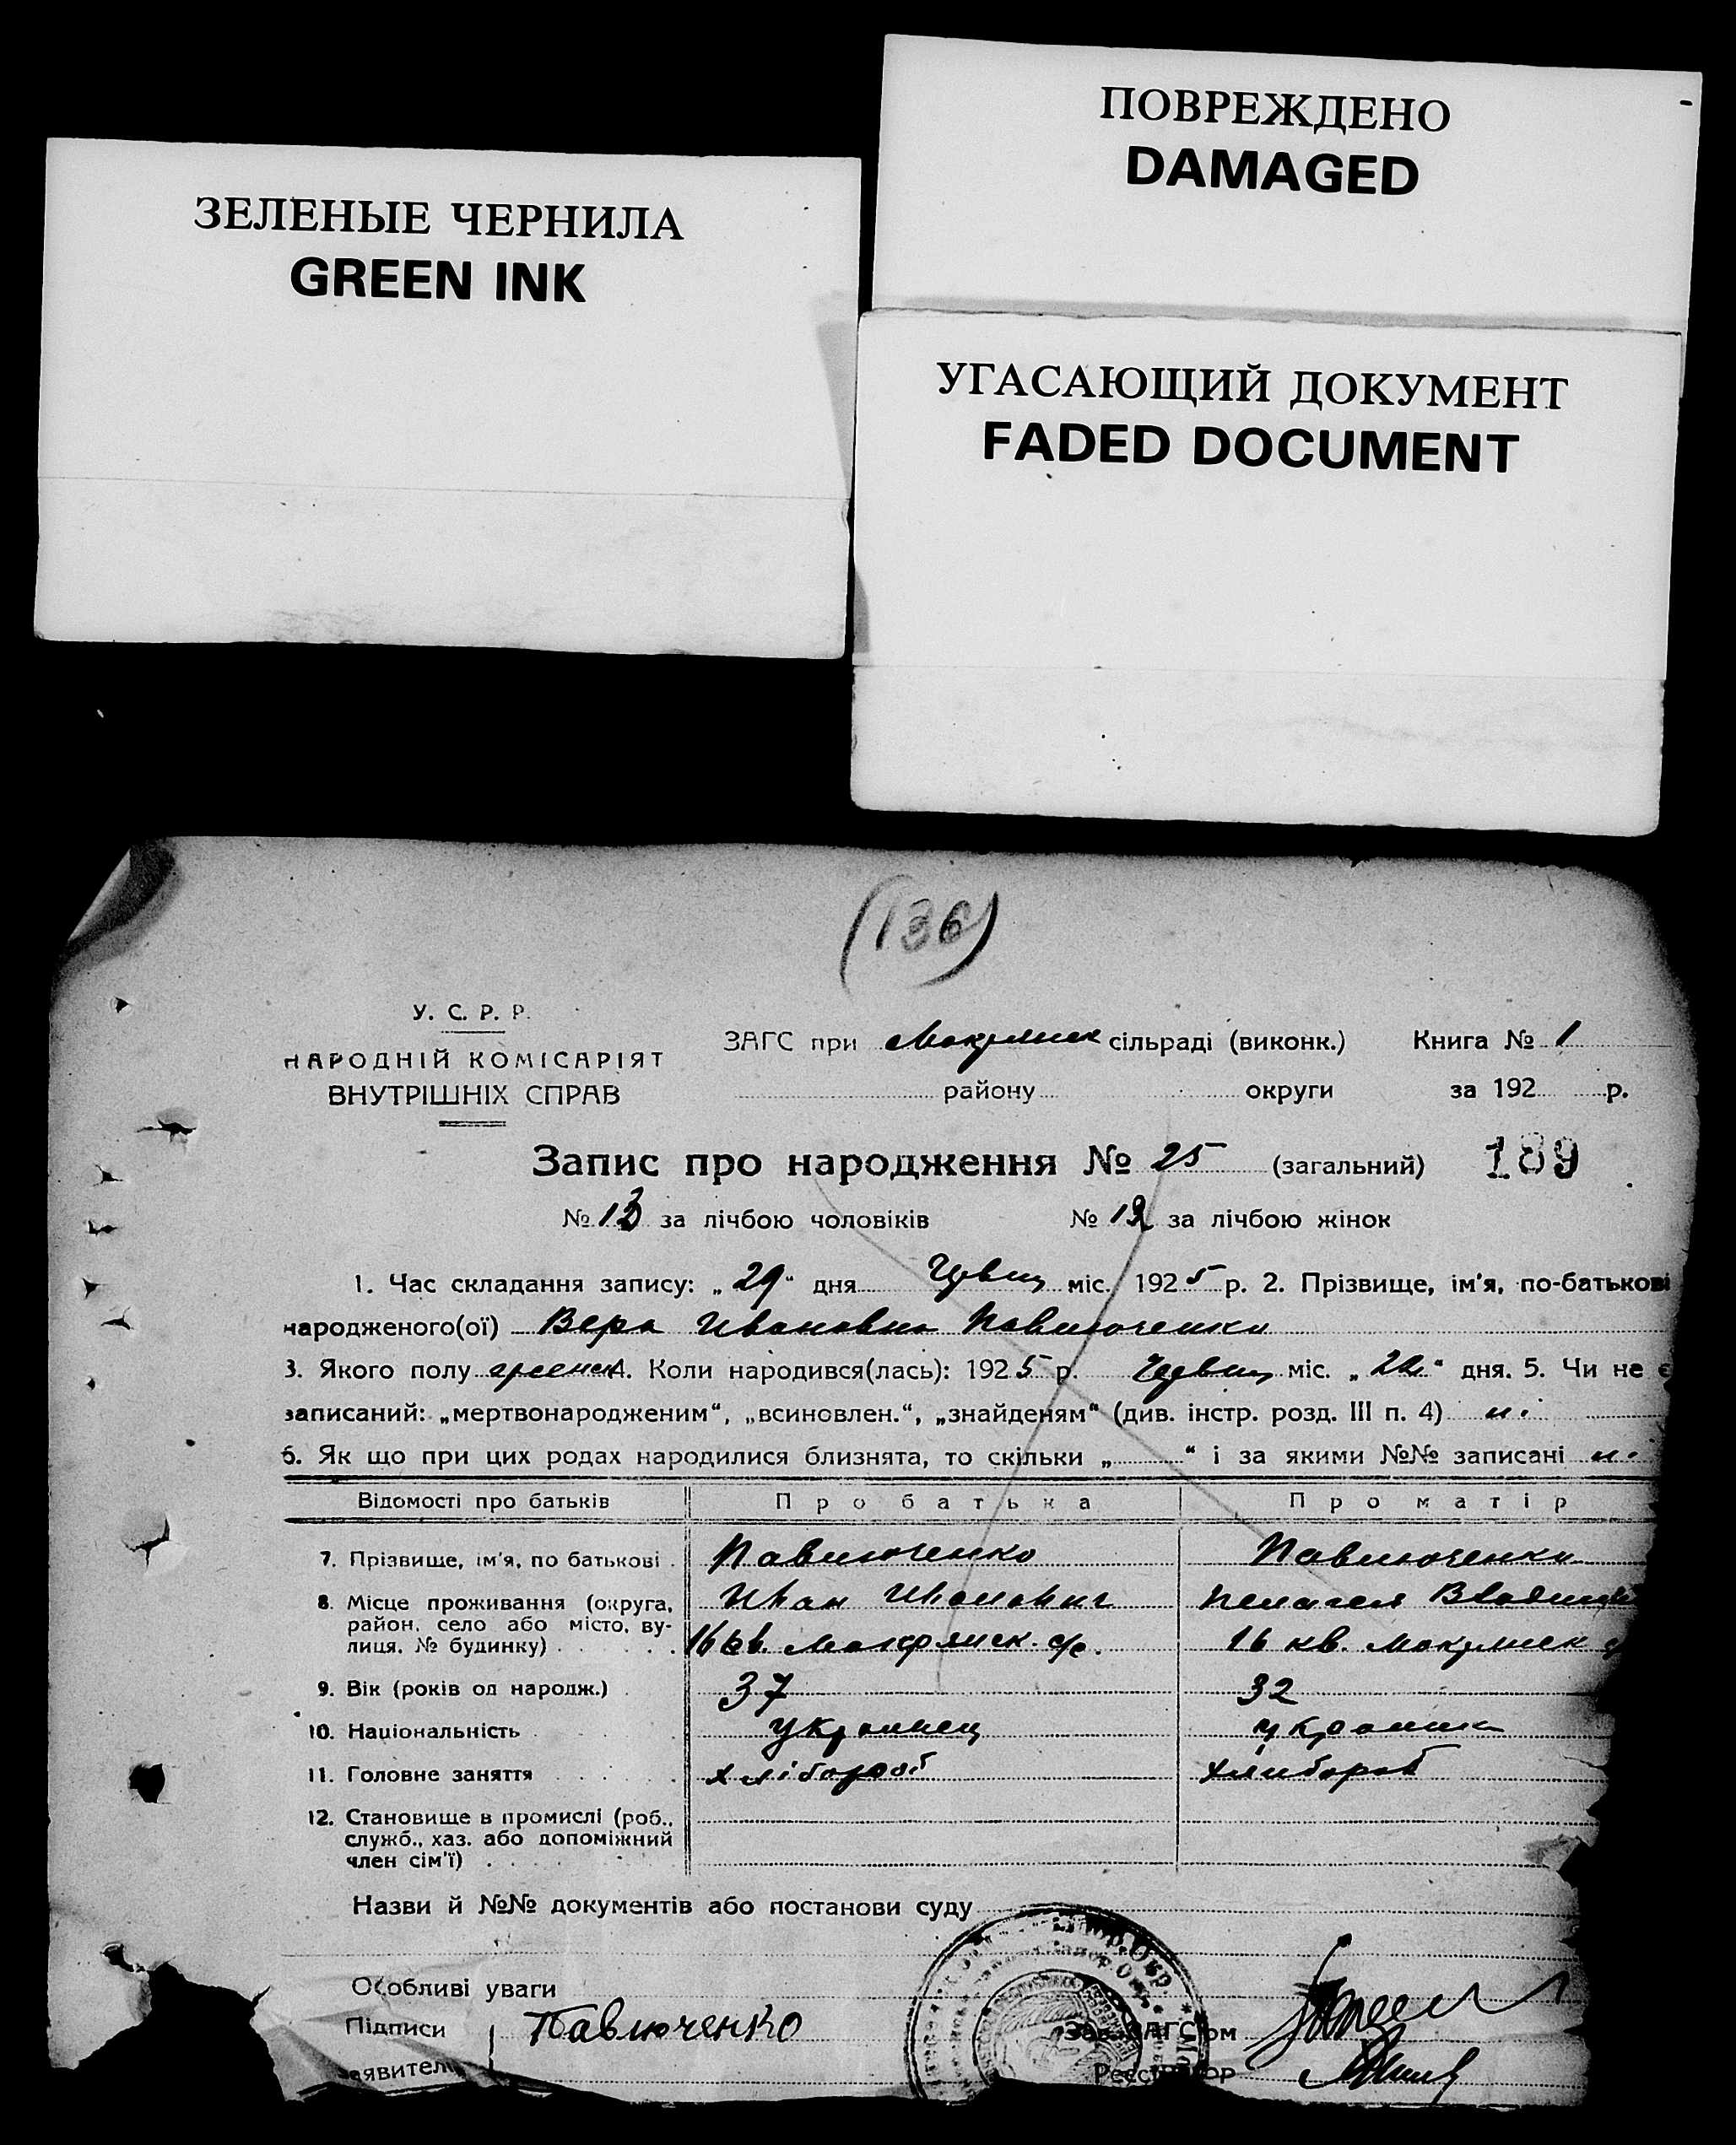 ПОВРЕЖДЕНО
DAMAGED
ЗЕЛЕНЫЕ ЧЕРНИЛА
GREEN INK
УГАСАЮЩИЙ ДОКУМЕНТ
FADED DOCUMENT
(136)
У. С. Р. Р.
НАРОДНІЙ КОМІСАРІЯТ
ВНУТРІШНІХ СПРАВ
ЗАГС при сільраді (виконк.) Книга № 1
району округи за 192 р.
Запис про народження № 25 (загальний) 189
№ 13 за лічбою чоловіків № 12 за лічбою жінок
1. Час складання запису: „29“ дня міс. 1925 р. 2. Прізвище, ім'я, по-батькові
народженого(ої) Вера Ивановна Павлюченко
3. Якого полу 4. Коли народився(лась): 1925 р. міс. „22“ дня. 5. Чи не є
записаний: „мертвонародженим“, „всиновлен.“, „знайденям“ (див. інстр. розд. III п. 4) ні
6. Як що при цих родах народилися близнята, то скільки „ “ і за якими №№ записані ні
Відомості про батьків Про батька Про матір
7. Прізвище, ім'я, по батькові Павлюченко Павлюченко
8. Місце проживання (округа, Иван Иванович Пелагея
район, село або місто, ву-
лиця, № будинку) 16 кв. с/с. 16 кв.
9. Вік (років од народж.) 37 32
10. Національність украинец
11. Головне заняття хлібороб хлибороб
12. Становище в промислі (роб.,
служб., хаз. або допоміжний
член сім'ї)
Назви й №№ документів або постанови суду
Особливі уваги
Підписи Павлюченко Зав. ЗАГС'ом
заявителів Реєстратор